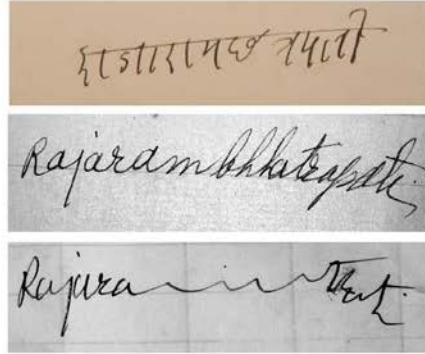 राजारामछ त्रपती
Rajaram Chhatrapati.
Rajara